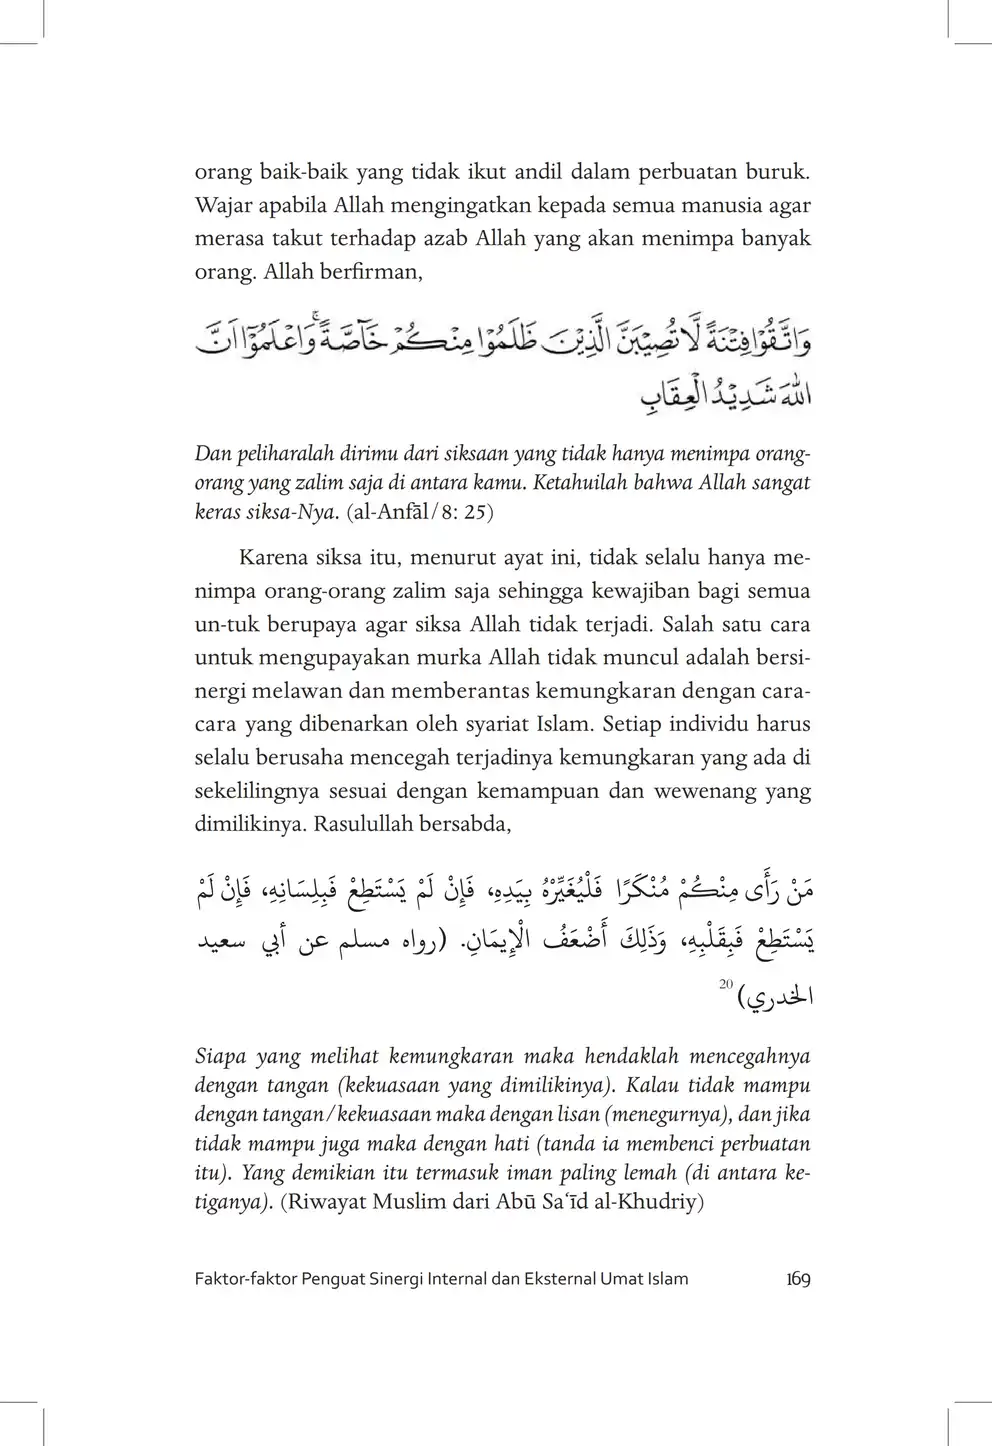 orang baik-baik yang tidak ikut andil dalam perbuatan buruk.
Wajar apabila Allah mengingatkan kepada semua manusia agar
merasa takut terhadap azab Allah yang akan menimpa banyak
orang. Allah berfirman,
وَاتَّقُوْا فِتْنَةً لَّا تُصِيْبَنَّ الَّذِيْنَ ظَلَمُوْا مِنْكُمْ خَاۤصَّةً ۚوَاعْلَمُوْٓا اَنَّ
اللّٰهَ شَدِيْدُ الْعِقَابِ
Dan peliharalah dirimu dari siksaan yang tidak hanya menimpa orang-
orang yang zalim saja di antara kamu. Ketahuilah bahwa Allah sangat
keras siksa-Nya. (al-Anfāl/8: 25)
Karena siksa itu, menurut ayat ini, tidak selalu hanya me-
nimpa orang-orang zalim saja sehingga kewajiban bagi semua
un-tuk berupaya agar siksa Allah tidak terjadi. Salah satu cara
untuk mengupayakan murka Allah tidak muncul adalah bersi-
nergi melawan dan memberantas kemungkaran dengan cara-
cara yang dibenarkan oleh syariat Islam. Setiap individu harus
selalu berusaha mencegah terjadinya kemungkaran yang ada di
sekelilingnya sesuai dengan kemampuan dan wewenang yang
dimilikinya. Rasulullah bersabda,
مَنْ رَأَى مِنْكُمْ مُنْكَرًا فَلْيُغَيِّرْهُ بِيَدِهِ، فَإِنْ لَمْ يَسْتَطِعْ فَبِلِسَانِهِ، فَإِنْ لَمْ
يَسْتَطِعْ فَبِقَلْبِهِ، وَذَلِكَ أَضْعَفُ الْإِيمَانِ. (رواه مسلم عن أبي سعيد
الخدري) 20
Siapa yang melihat kemungkaran maka hendaklah mencegahnya
dengan tangan (kekuasaan yang dimilikinya). Kalau tidak mampu
dengan tangan/kekuasaan maka dengan lisan (menegurnya), dan jika
tidak mampu juga maka dengan hati (tanda ia membenci perbuatan
itu). Yang demikian itu termasuk iman paling lemah (di antara ke-
tiganya). (Riwayat Muslim dari Abū Sa‘īd al-Khudriy)
Faktor-faktor Penguat Sinergi Internal dan Eksternal Umat Islam 169